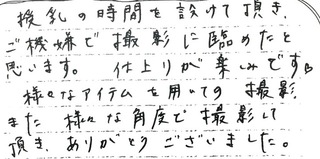 授乳の時間を設けて頂き、
ご機嫌で撮影に臨めたと
思います。 仕上りが楽しみです。
様々なアイテムを用いての撮影、
また 様々な角度で撮影して
頂き、ありがとうございました。